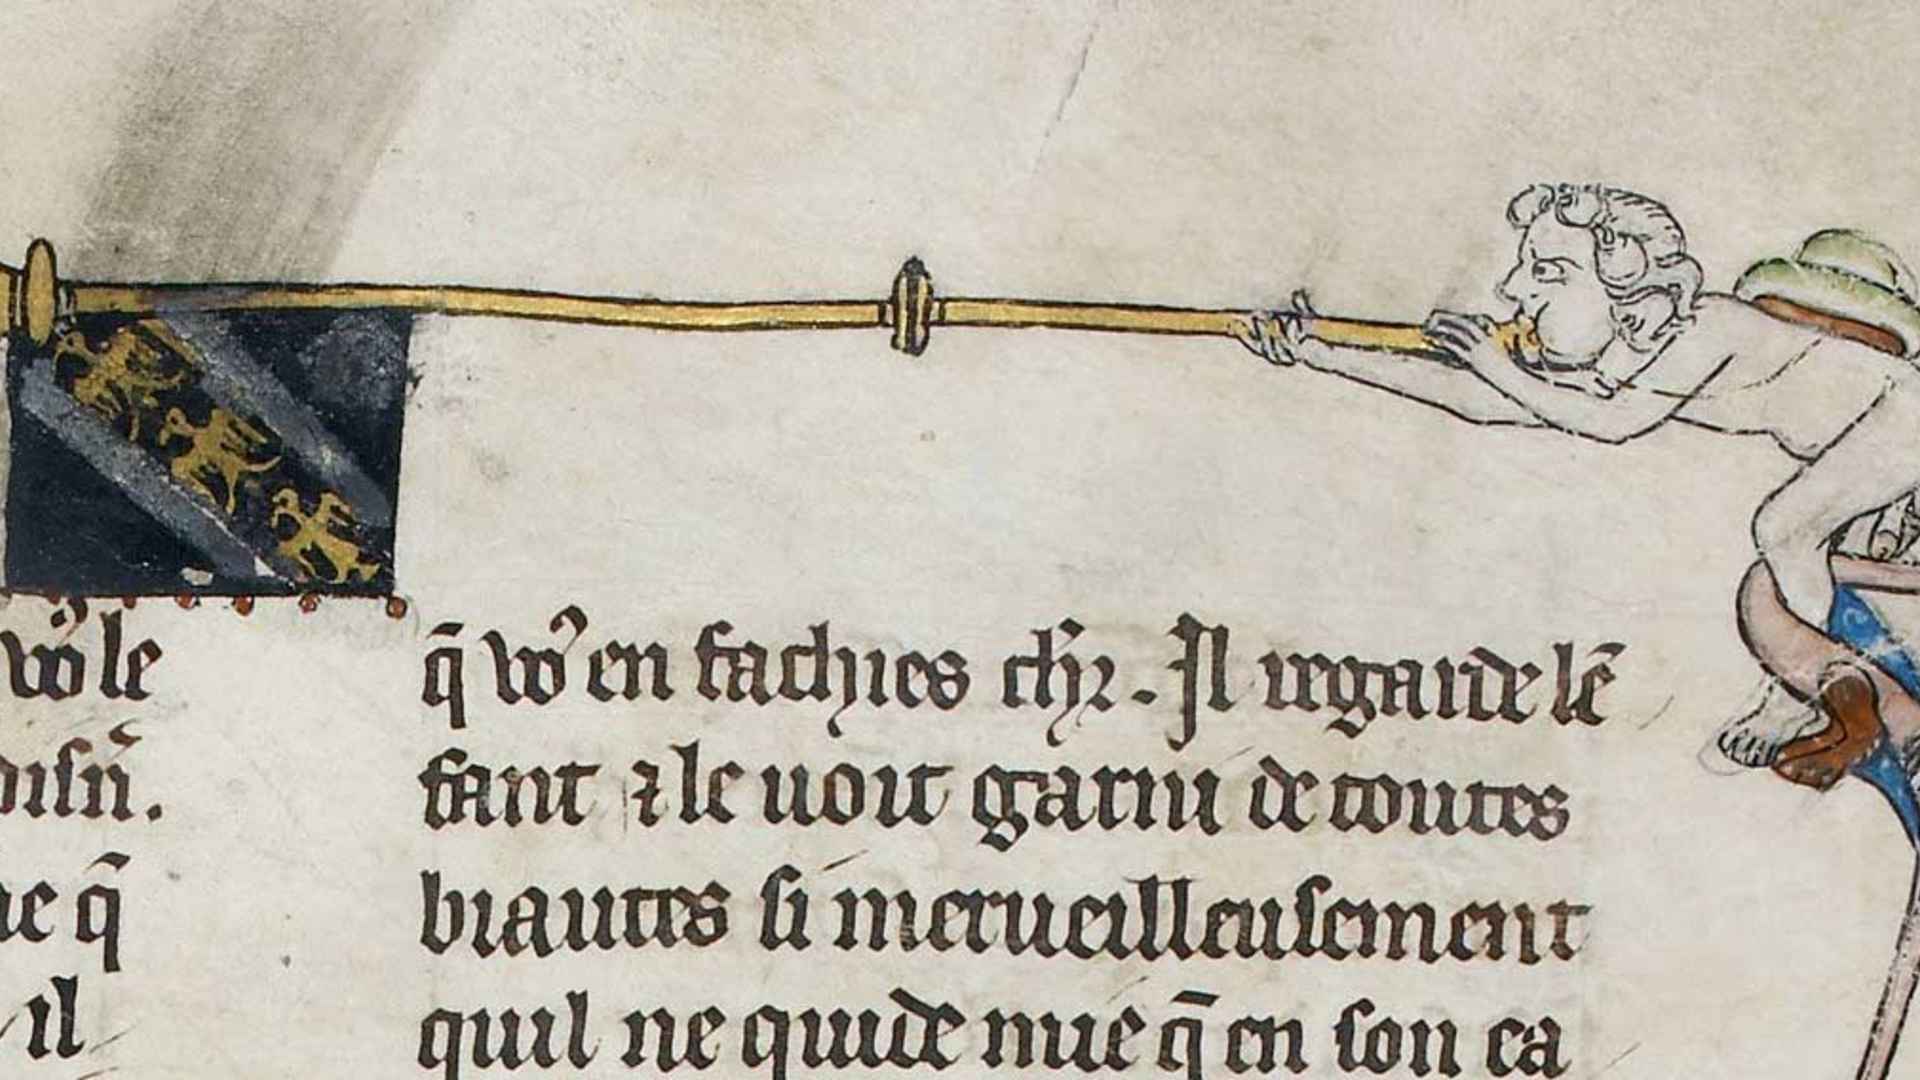 vo᷒ le
disn̄.
ue q̄
il
q̄ vo᷒ en fachies chl̄r. Il regarde lē
fant ⁊ le uoit garni de toutes
biautes si merueilleusement
quil ne quide mie q̄ en son ea